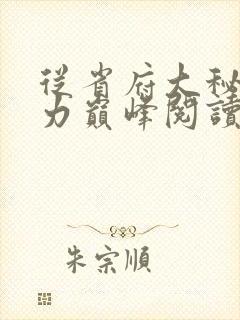 從省府大秘
力巔峰閱讀
朱宗順